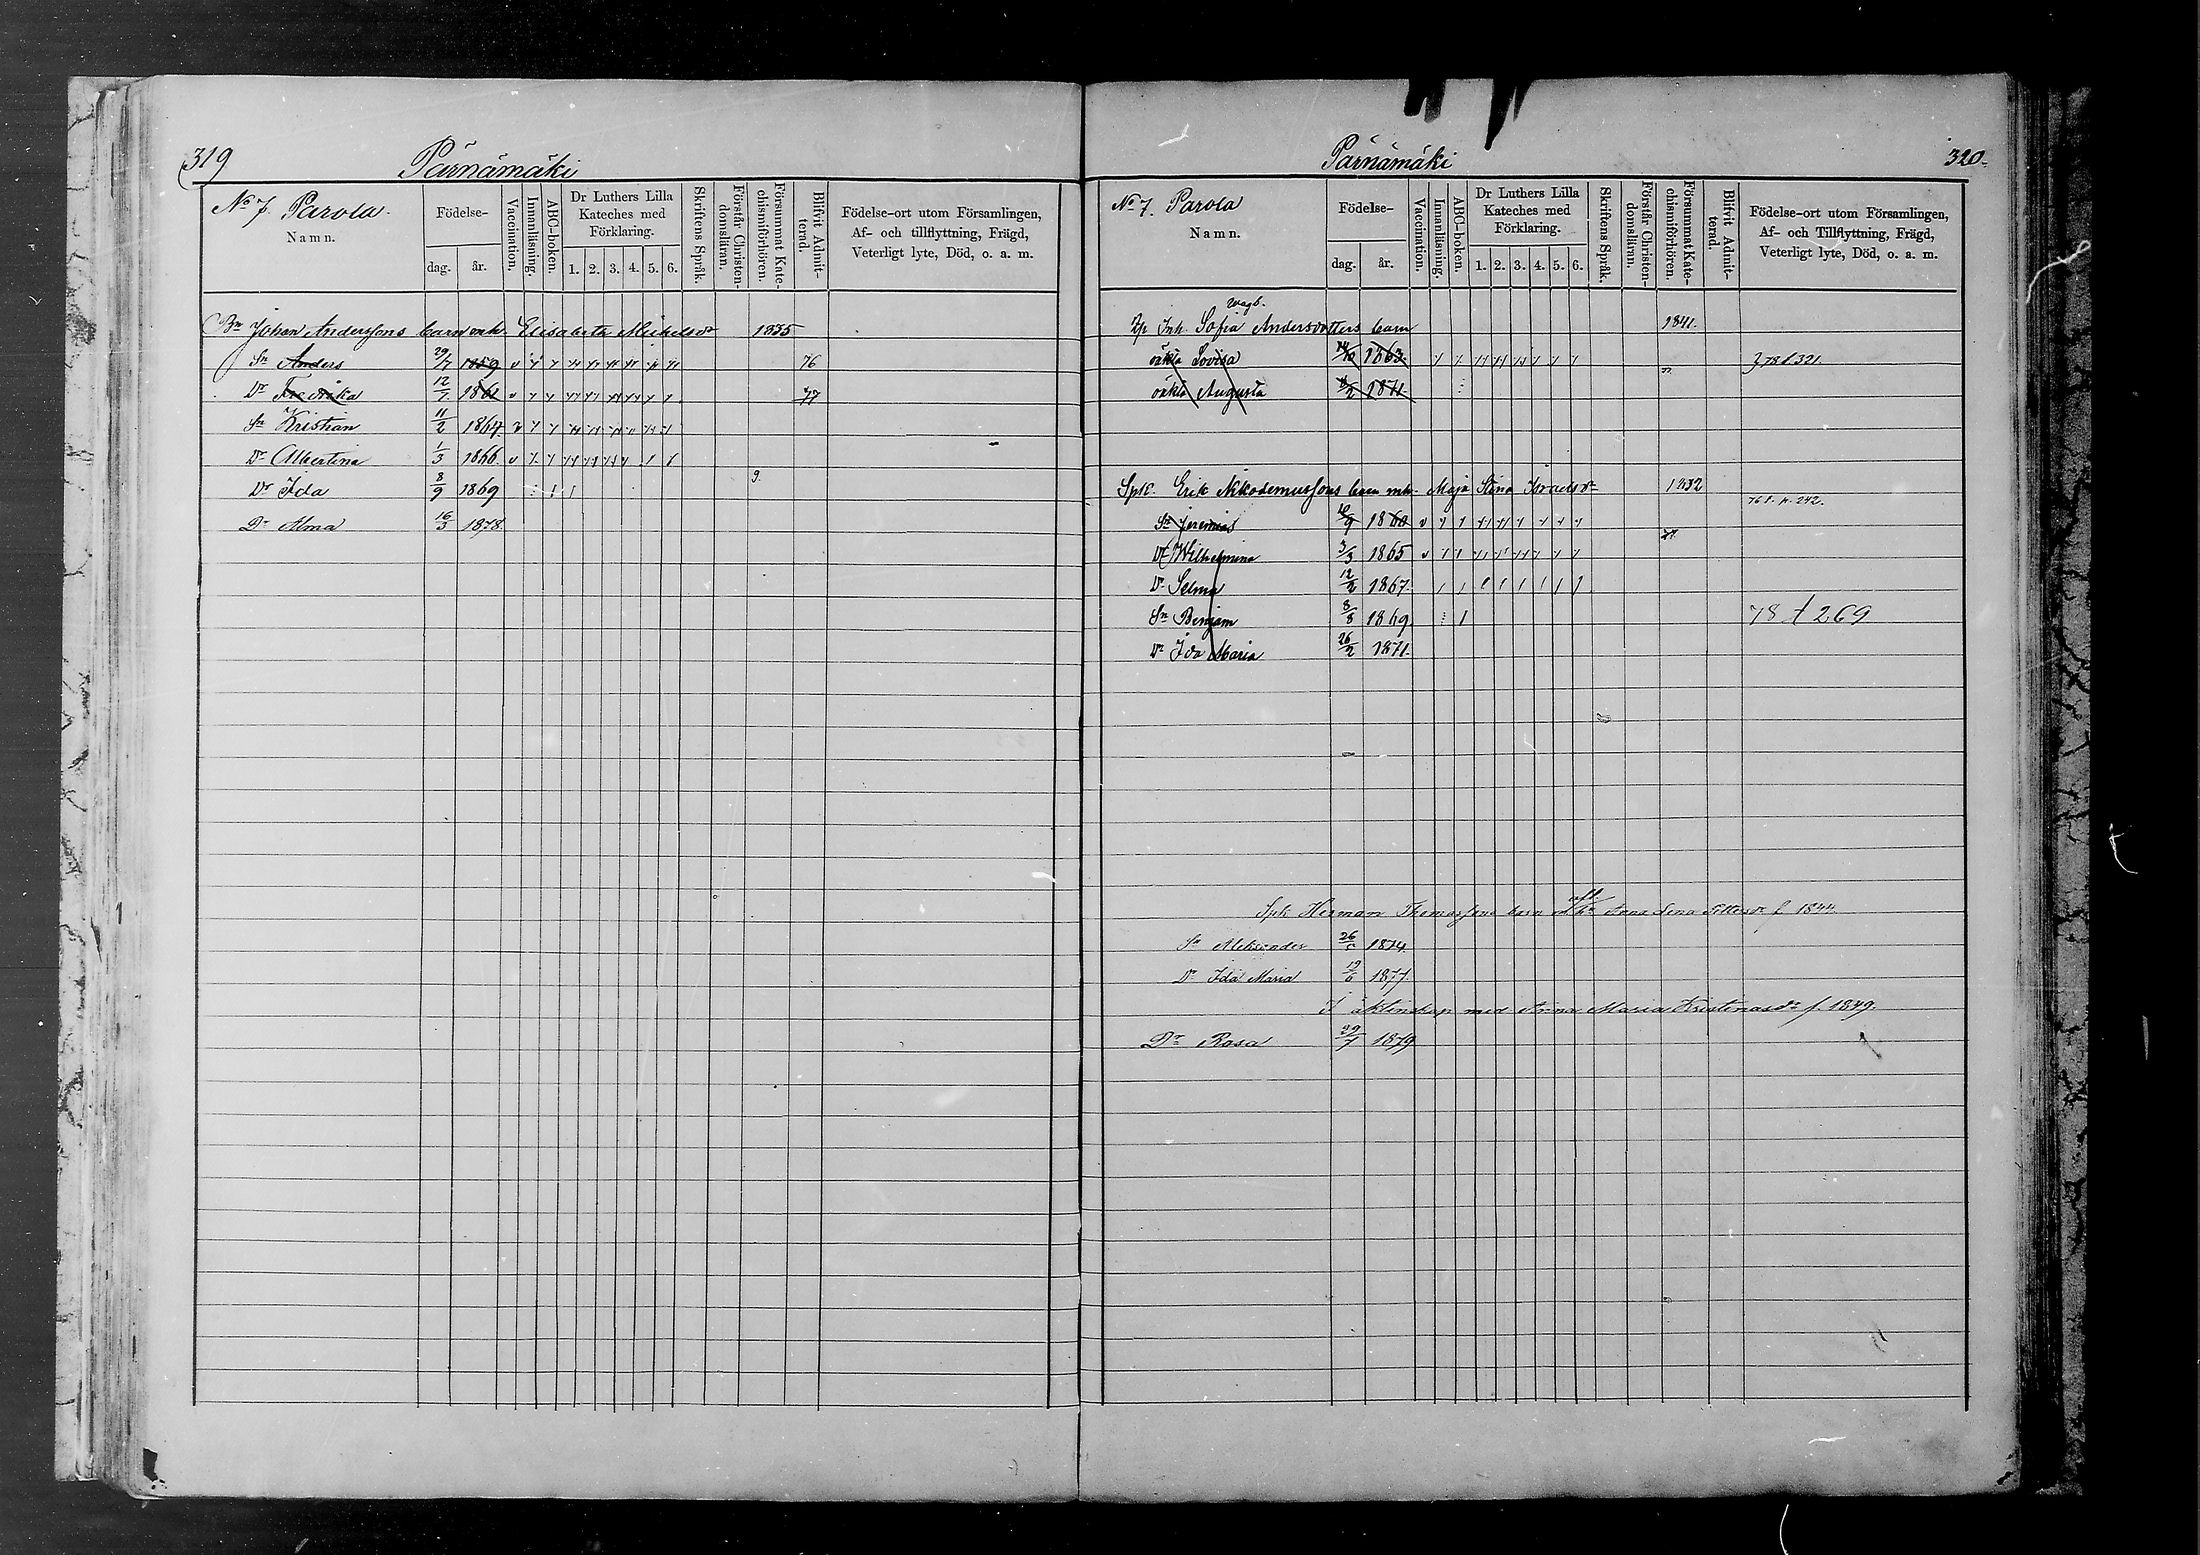 319
Pärnämäki
No 7. Parola.
Namn.
Födelse-
dag. år.
Vaccination.
Innanläsning.
ABC-boken.
Dr Luthers Lilla
Kateches med
Förklaring.
1. 2. 3. 4. 5. 6.
Skriftens Språk.
Förstår Christen-
domsläran.
Försummat Kate-
chismiförhören.
Blifvit Admit-
terad.
Födelse-ort utom Församlingen,
Af- och tillflyttning, Frägd,
Veterligt lyte, Död, o. a. m.
Bn Johan Anderssons barn mh Elisabeta Mickelsdr 1835
Sn Anders 29/7 1859 76
Dr Fredrika 12/7 1861 77
Sn Kristian 11/2 1864
Dr Albertina 1/3 1866
Dr Ida 8/9 1869 9.
Dr Alma 16/3 1878
Pärnämäki
320
No 7. Parola
Namn.
Födelse-
dag. år.
Vaccination.
Innanläsning.
ABC-boken.
Dr Luthers Lilla
Kateches med
Förklaring.
1. 2. 3. 4. 5. 6.
Skriftens Språk.
Förstår Christen-
domsläran.
Försummat Kate-
chismiförhören.
Blifvit Admit-
terad.
Födelse-ort utom Församlingen,
Af- och Tillflyttning, Frägd,
Veterligt lyte, Död, o. a. m.
Inh. Sofia Andersdotters barn 1841.
oäkta Lovisa 1863 321
oäkta Augusta 1871
Spk. Erik Nikodemussons barn mh. Maja Stina Israelsdr 1832
76 f. p. 242.
Sn Jeremias 1860
Dr Wilhelmina 3/3 1865
Dr Selma 12/2 1867
Sn Benjam 8/8 1869 78 f 269
Dr Ida Maria 26/2 1871.
Spk Herman Thomassons barn Anna Lena f 1844.
Sn Aleksander 1874
Dr Ida Maria 19/6 1877
I äktenskap med Anna Maria Kristinasdr f. 1849.
Dr Rosa 29/7 1879